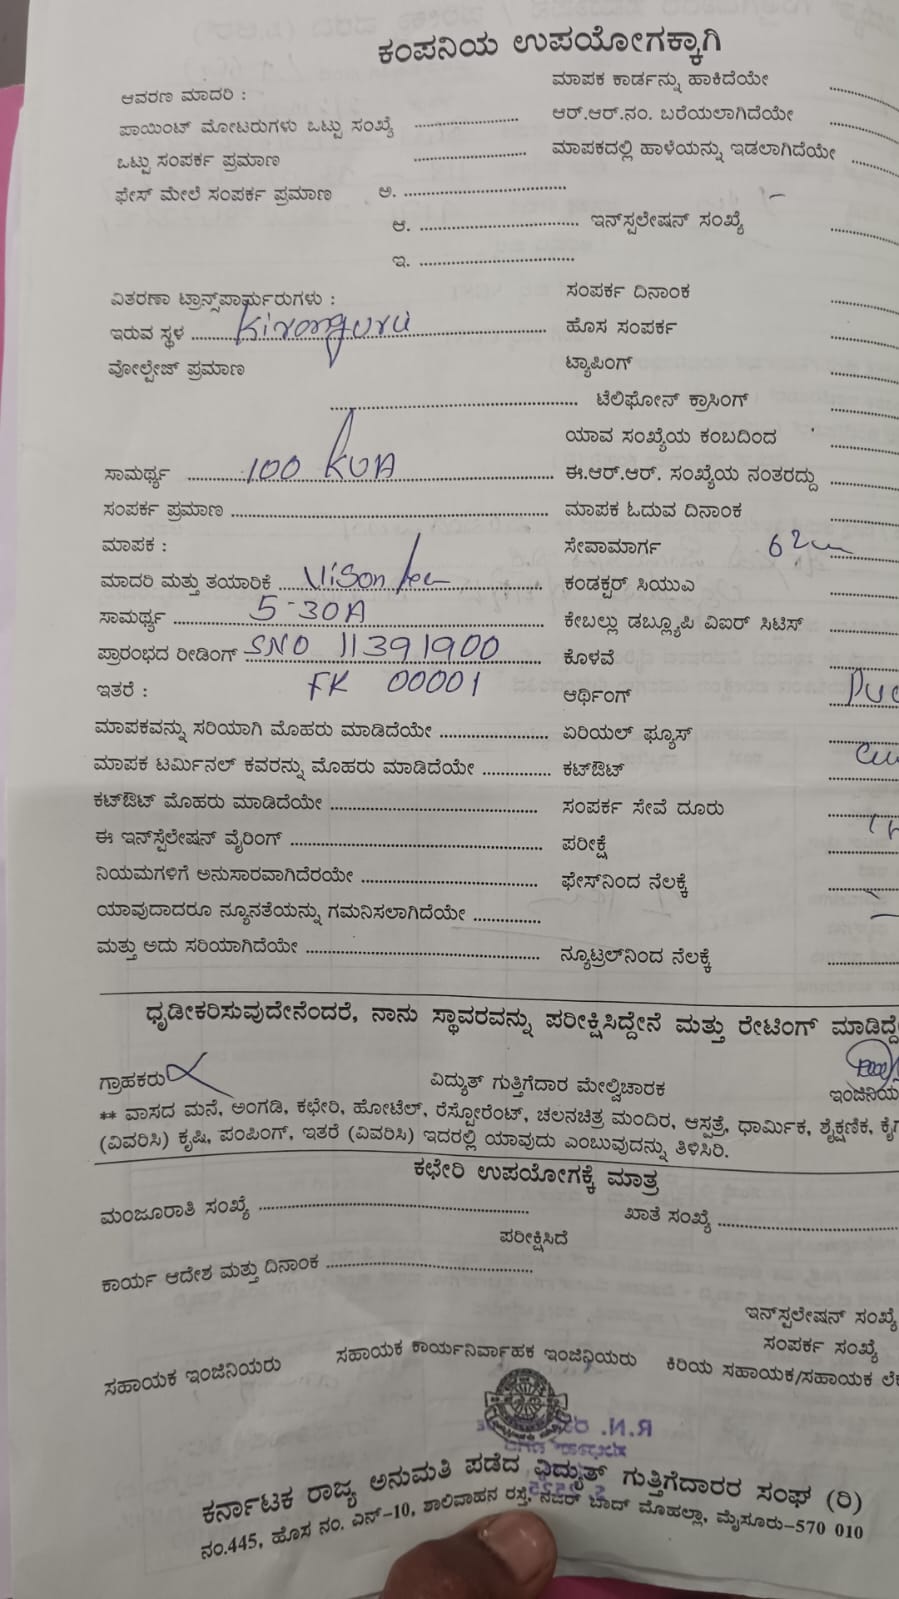 ಕಂಪನಿಯ ಉಪಯೋಗಕ್ಕಾಗಿ
ಆವರಣ ಮಾದರಿ :
ಮಾಪಕ ಕಾರ್ಡನ್ನು ಹಾಕಿದೆಯೇ ..........
ಪಾಯಿಂಟ್ ಮೋಟರುಗಳು ಒಟ್ಟು ಸಂಖ್ಯೆ ....................
ಆರ್.ಆರ್.ನಂ. ಬರೆಯಲಾಗಿದೆಯೇ ..........
ಒಟ್ಟು ಸಂಪರ್ಕ ಪ್ರಮಾಣ ....................
ಮಾಪಕದಲ್ಲಿ ಹಾಳೆಯನ್ನು ಇಡಲಾಗಿದೆಯೇ ..........
ಫೇಸ್ ಮೇಲೆ ಸಂಪರ್ಕ ಪ್ರಮಾಣ ಅ. ....................
ಆ. .................... ಇನ್‌ಸ್ಪಲೇಷನ್ ಸಂಖ್ಯೆ ..........
ಇ. ....................
ವಿತರಣಾ ಟ್ರಾನ್ಸ್‌ಪಾರ್ಮರುಗಳು :
ಸಂಪರ್ಕ ದಿನಾಂಕ ..........
ಇರುವ ಸ್ಥಳ Kiranguru
ಹೊಸ ಸಂಪರ್ಕ ..........
ವೋಲ್ಟೇಜ್ ಪ್ರಮಾಣ
ಟ್ಯಾಪಿಂಗ್ ..........
.................... ಟೆಲಿಫೋನ್ ಕ್ರಾಸಿಂಗ್ ..........
ಯಾವ ಸಂಖ್ಯೆಯ ಕಂಬದಿಂದ ..........
ಸಾಮರ್ಥ್ಯ 100 KVA
ಈ.ಆರ್.ಆರ್. ಸಂಖ್ಯೆಯ ನಂತರದ್ದು ..........
ಸಂಪರ್ಕ ಪ್ರಮಾಣ ....................
ಮಾಪಕ ಓದುವ ದಿನಾಂಕ ..........
ಮಾಪಕ :
ಸೇವಾಮಾರ್ಗ
ಮಾದರಿ ಮತ್ತು ತಯಾರಿಕೆ
ಕಂಡಕ್ಟರ್ ಸಿಯುಎ ..........
ಸಾಮರ್ಥ್ಯ 5-30A
ಕೇಬಲ್ಲು ಡಬ್ಲ್ಯೂಪಿ ವಿಐರ್ ಸಿಟಿಸ್ ..........
ಪ್ರಾರಂಭದ ರೀಡಿಂಗ್ SNO 11391900
ಕೊಳವೆ ..........
ಇತರೆ : FK 00001
ಆರ್ಥಿಂಗ್
ಮಾಪಕವನ್ನು ಸರಿಯಾಗಿ ಮೊಹರು ಮಾಡಿದೆಯೇ ....................
ಏರಿಯಲ್ ಫ್ಯೂಸ್ ..........
ಮಾಪಕ ಟರ್ಮಿನಲ್ ಕವರನ್ನು ಮೊಹರು ಮಾಡಿದೆಯೇ ..............
ಕಟ್‌ಔಟ್
ಕಟ್‌ಔಟ್ ಮೊಹರು ಮಾಡಿದೆಯೇ ....................
ಸಂಪರ್ಕ ಸೇವೆ ದೂರು ..........
ಈ ಇನ್‌ಸ್ಪೆಲೇಷನ್ ವೈರಿಂಗ್ ....................
ಪರೀಕ್ಷೆ
ನಿಯಮಗಳಿಗೆ ಅನುಸಾರವಾಗಿದೆರಯೇ ....................
ಫೇಸ್‌ನಿಂದ ನೆಲಕ್ಕೆ ..........
ಯಾವುದಾದರೂ ನ್ಯೂನತೆಯನ್ನು ಗಮನಿಸಲಾಗಿದೆಯೇ ..............
ಮತ್ತು ಅದು ಸರಿಯಾಗಿದೆಯೇ ....................
ನ್ಯೂಟ್ರಲ್‌ನಿಂದ ನೆಲಕ್ಕೆ ..........
ಧೃಡೀಕರಿಸುವುದೇನೆಂದರೆ, ನಾನು ಸ್ಥಾವರವನ್ನು ಪರೀಕ್ಷಿಸಿದ್ದೇನೆ ಮತ್ತು ರೇಟಿಂಗ್ ಮಾಡಿದ್ದೆ
ಗ್ರಾಹಕರು
ವಿದ್ಯುತ್ ಗುತ್ತಿಗೆದಾರ ಮೇಲ್ವಿಚಾರಕ
ಇಂಜಿನಿಯ
** ವಾಸದ ಮನೆ, ಅಂಗಡಿ, ಕಛೇರಿ, ಹೋಟೆಲ್, ರೆಸ್ಟೋರೆಂಟ್, ಚಲನಚಿತ್ರ ಮಂದಿರ, ಆಸ್ಪತ್ರೆ, ಧಾರ್ಮಿಕ, ಶೈಕ್ಷಣಿಕ, ಕೈಗ
(ವಿವರಿಸಿ) ಕೃಷಿ, ಪಂಪಿಂಗ್, ಇತರೆ (ವಿವರಿಸಿ) ಇದರಲ್ಲಿ ಯಾವುದು ಎಂಬುವುದನ್ನು ತಿಳಿಸಿರಿ.
ಕಛೇರಿ ಉಪಯೋಗಕ್ಕೆ ಮಾತ್ರ
ಮಂಜೂರಾತಿ ಸಂಖ್ಯೆ ....................
ಖಾತೆ ಸಂಖ್ಯೆ ....................
ಪರೀಕ್ಷಿಸಿದೆ
ಕಾರ್ಯ ಆದೇಶ ಮತ್ತು ದಿನಾಂಕ ....................
ಇನ್‌ಸ್ಪಲೇಷನ್ ಸಂಖ್ಯೆ
ಸಂಪರ್ಕ ಸಂಖ್ಯೆ
ಸಹಾಯಕ ಇಂಜಿನಿಯರು
ಸಹಾಯಕ ಕಾರ್ಯನಿರ್ವಾಹಕ ಇಂಜಿನಿಯರು
ಕಿರಿಯ ಸಹಾಯಕ/ಸಹಾಯಕ ಲೆ
ಕರ್ನಾಟಕ ರಾಜ್ಯ ಅನುಮತಿ ಪಡೆದ ವಿದ್ಯುತ್ ಗುತ್ತಿಗೆದಾರರ ಸಂಘ (ರಿ)
ನಂ.445, ಹೊಸ ನಂ. ಎನ್-10, ಶಾಲಿವಾಹನ ರಸ್ತೆ, ನಜರ್ ಬಾದ್ ಮೊಹಲ್ಲಾ, ಮೈಸೂರು-570 010